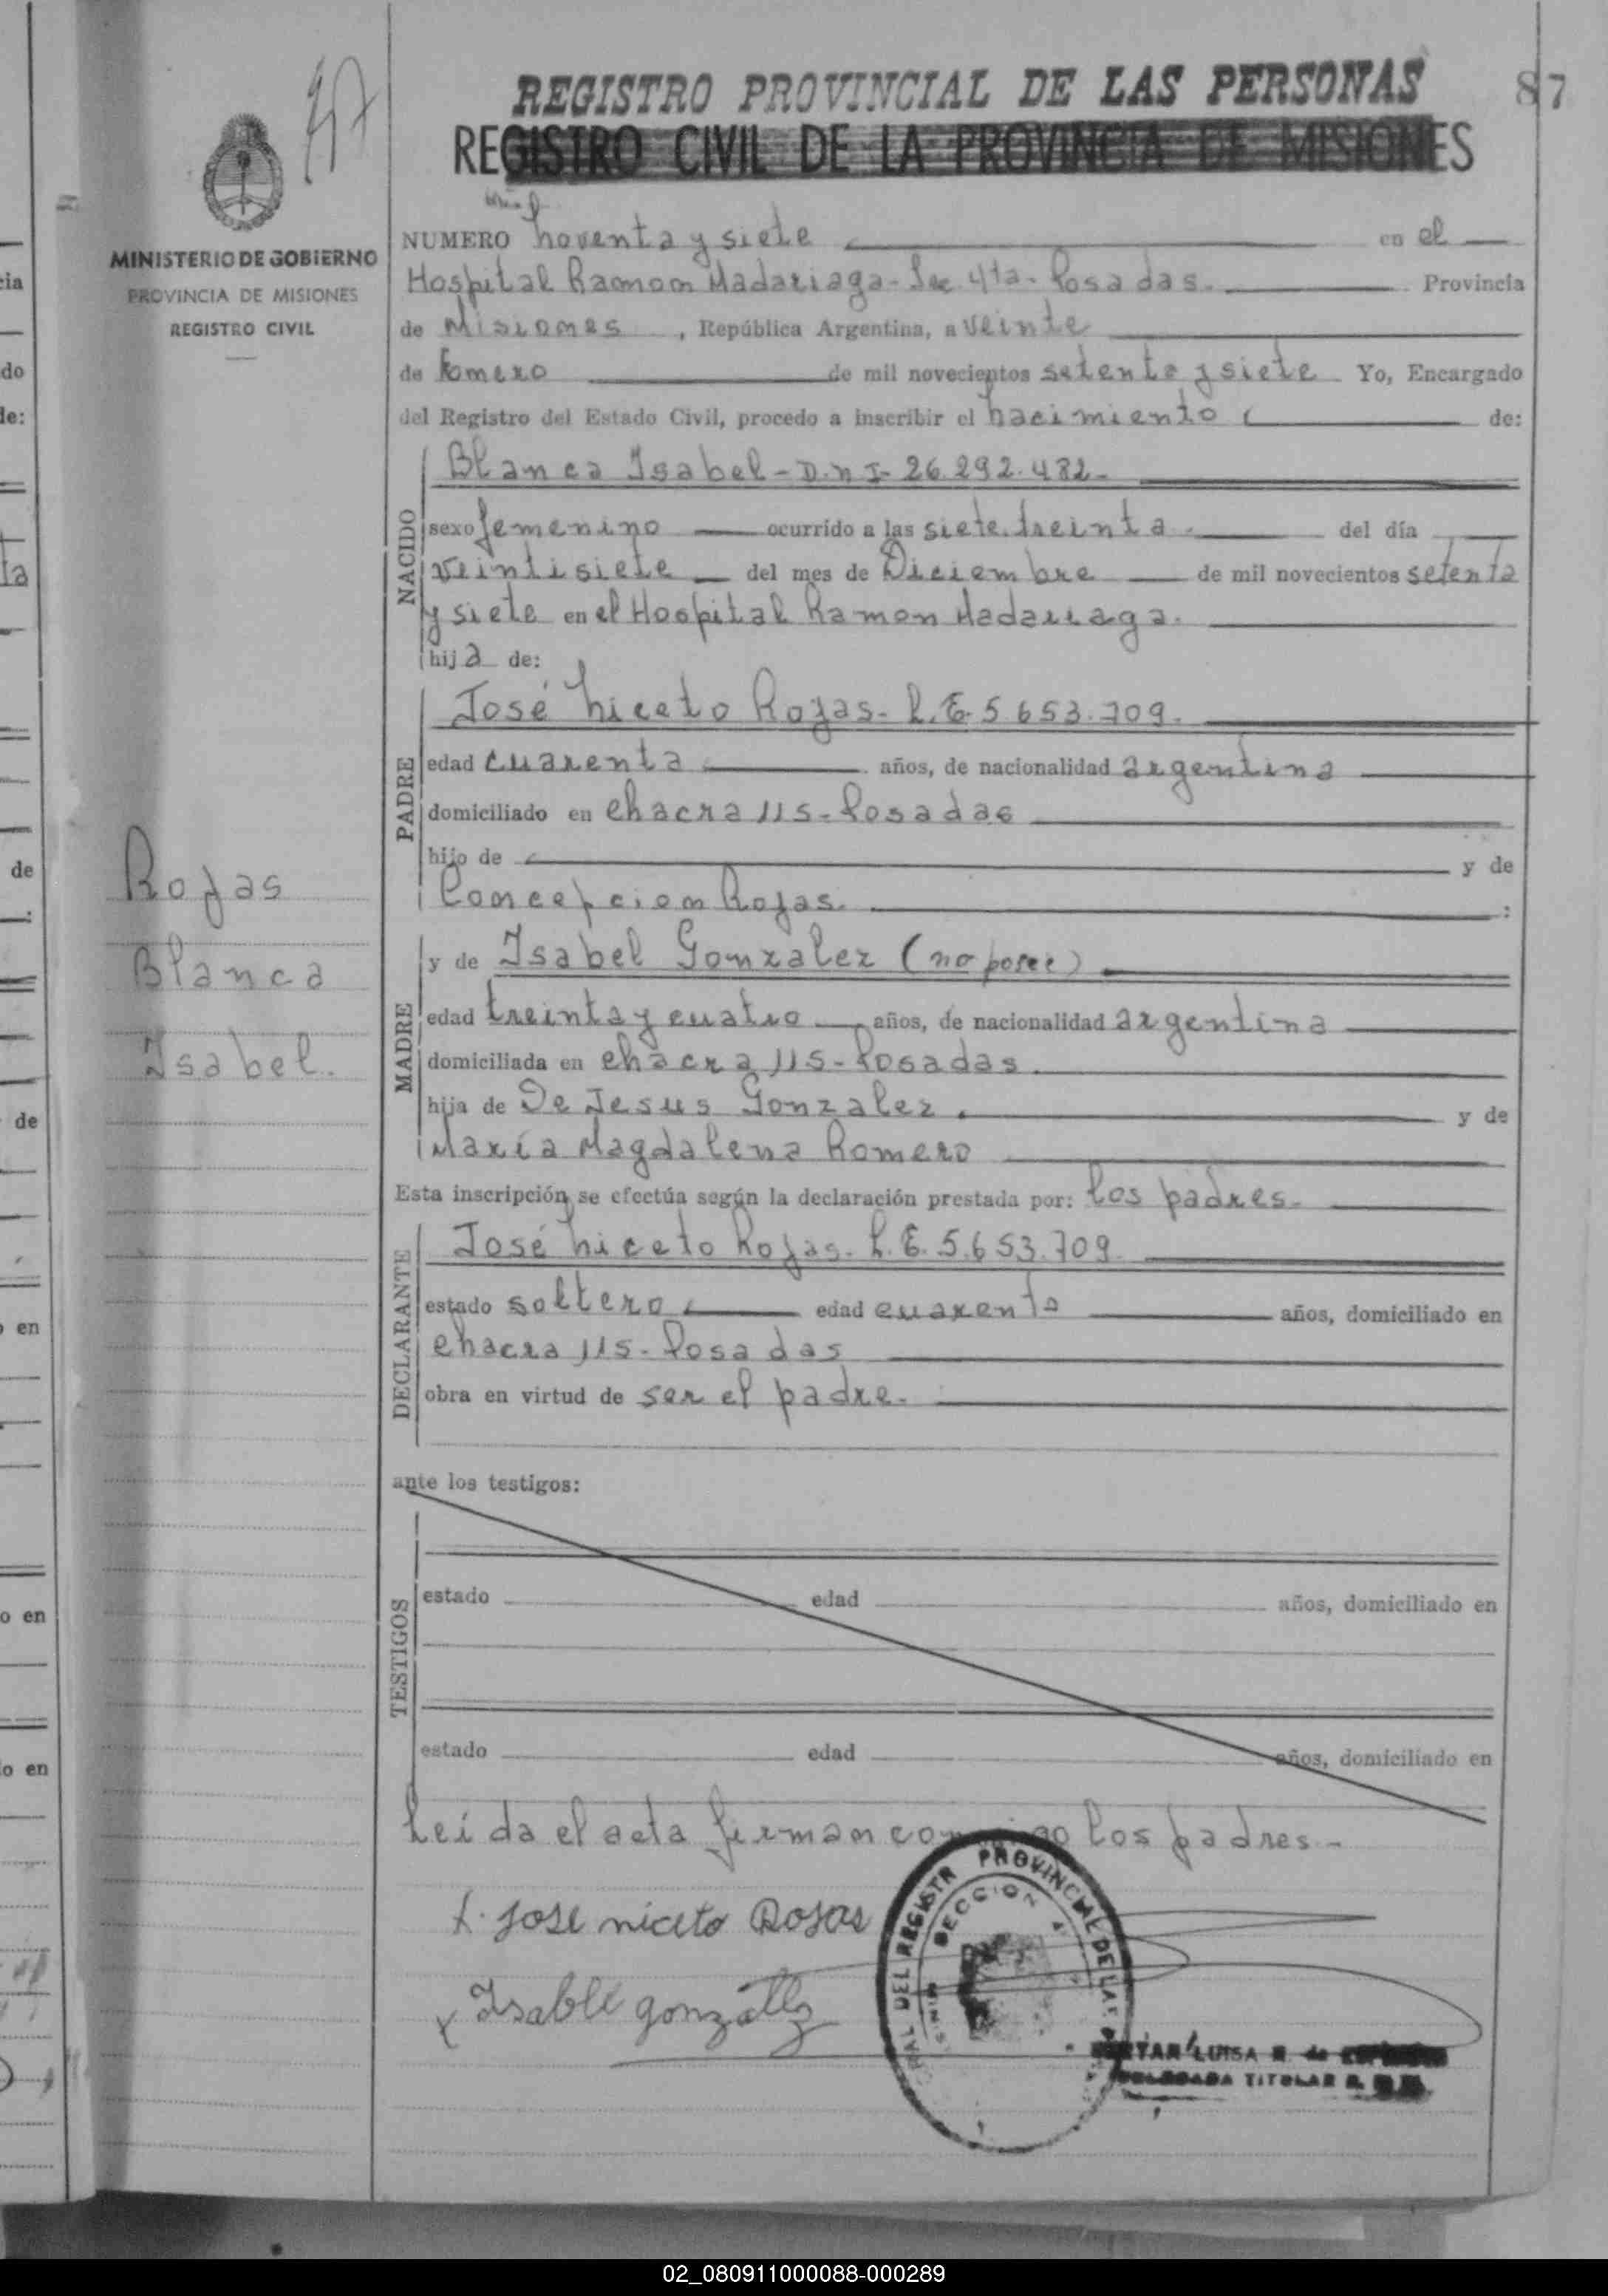 97
REGISTRO PROVINCIAL DE LAS PERSONAS
87
REGISTRO CIVIL DE LA PROVINCIA DE MISIONES
MINISTERIO DE GOBIERNO
PROVINCIA DE MISIONES
REGISTRO CIVIL
NUMERO noventa y siete en el
Hospital Ramon Madariaga - Sec. 4ta - Posadas. Provincia
de Misiones, República Argentina, a veinte
de Enero de mil novecientos setenta y siete Yo, Encargado
del Registro del Estado Civil, procedo a inscribir el nacimiento de:
NACIDO
Blanca Isabel - D.N.I- 26.292.482-
sexo femenino ocurrido a las siete treinta. del día
veintisiete del mes de Diciembre de mil novecientos setenta
y siete en el Hospital Ramon Madariaga.
hija de:
PADRE
José Niceto Rojas - L.E. 5.653.709.
edad cuarenta años, de nacionalidad argentina
domiciliado en chacra 115 - Posadas
hijo de y de
Concepcion Rojas. :
Rojas
Blanca
Isabel.
MADRE
y de Isabel Gonzalez (no posee)
edad treinta y cuatro años, de nacionalidad argentina
domiciliada en chacra 115 - Posadas.
hija de De Jesus Gonzalez. y de
María Magdalena Romero
Esta inscripción se efectúa según la declaración prestada por: los padres.
DECLARANTE
José Niceto Rojas - L.E. 5.653.709.
estado soltero edad cuarenta años, domiciliado en
chacra 115 - Posadas
obra en virtud de ser el padre.
ante los testigos:
TESTIGOS
estado edad años, domiciliado en
estado edad años, domiciliado en
Leída el acta firman conmigo los padres -
x. Jose niceto Rojas
x Isable gonzalez
DEL REGISTR PROVINCIAL DE LAS
SECCION 4
LUISA R. de
TITULAR
02_080911000088-000289